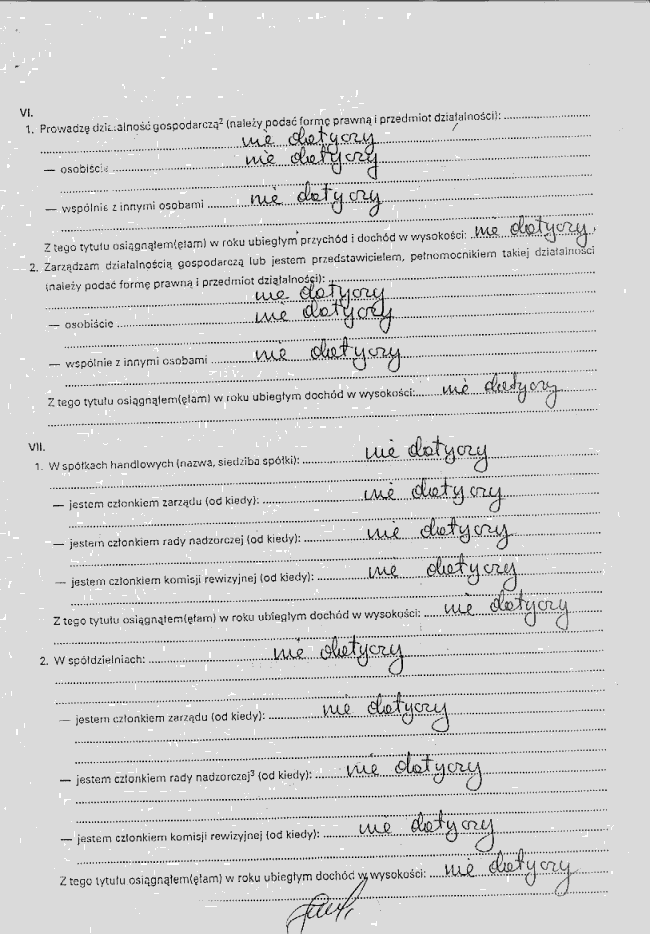 VI.
1. Prowadzę działalność gospodarczą² (należy podać formę prawną i przedmiot działalności):
nie dotyczy
— osobiście nie dotyczy
— wspólnie z innymi osobami nie dotyczy
Z tego tytułu osiągnąłem(ęłam) w roku ubiegłym przychód i dochód w wysokości: nie dotyczy.
2. Zarządzam działalnością gospodarczą lub jestem przedstawicielem, pełnomocnikiem takiej działalności
(należy podać formę prawną i przedmiot działalności):
nie dotyczy
— osobiście nie dotyczy
— wspólnie z innymi osobami nie dotyczy
Z tego tytułu osiągnąłem(ęłam) w roku ubiegłym dochód w wysokości: nie dotyczy
VII.
1. W spółkach handlowych (nazwa, siedziba spółki): nie dotyczy
— jestem członkiem zarządu (od kiedy): nie dotyczy
— jestem członkiem rady nadzorczej (od kiedy): nie dotyczy
— jestem członkiem komisji rewizyjnej (od kiedy): nie dotyczy
Z tego tytułu osiągnąłem(ęłam) w roku ubiegłym dochód w wysokości: nie dotyczy
2. W spółdzielniach: nie dotyczy
— jestem członkiem zarządu (od kiedy): nie dotyczy
— jestem członkiem rady nadzorczej³ (od kiedy): nie dotyczy
— jestem członkiem komisji rewizyjnej (od kiedy): nie dotyczy
Z tego tytułu osiągnąłem(ęłam) w roku ubiegłym dochód w wysokości: nie dotyczy